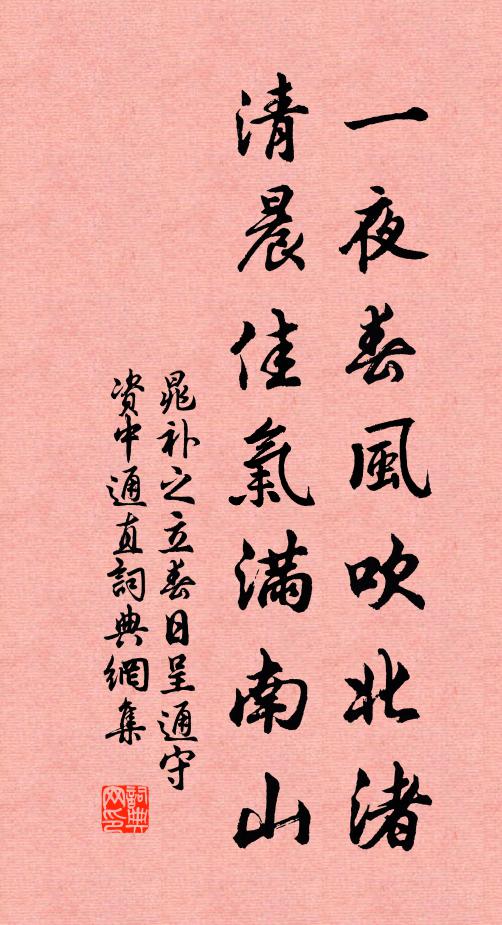 一夜春風吹北渚
清晨佳氣滿南山
晁补之立春日呈通守
资中通直詞典網集
詞典网印